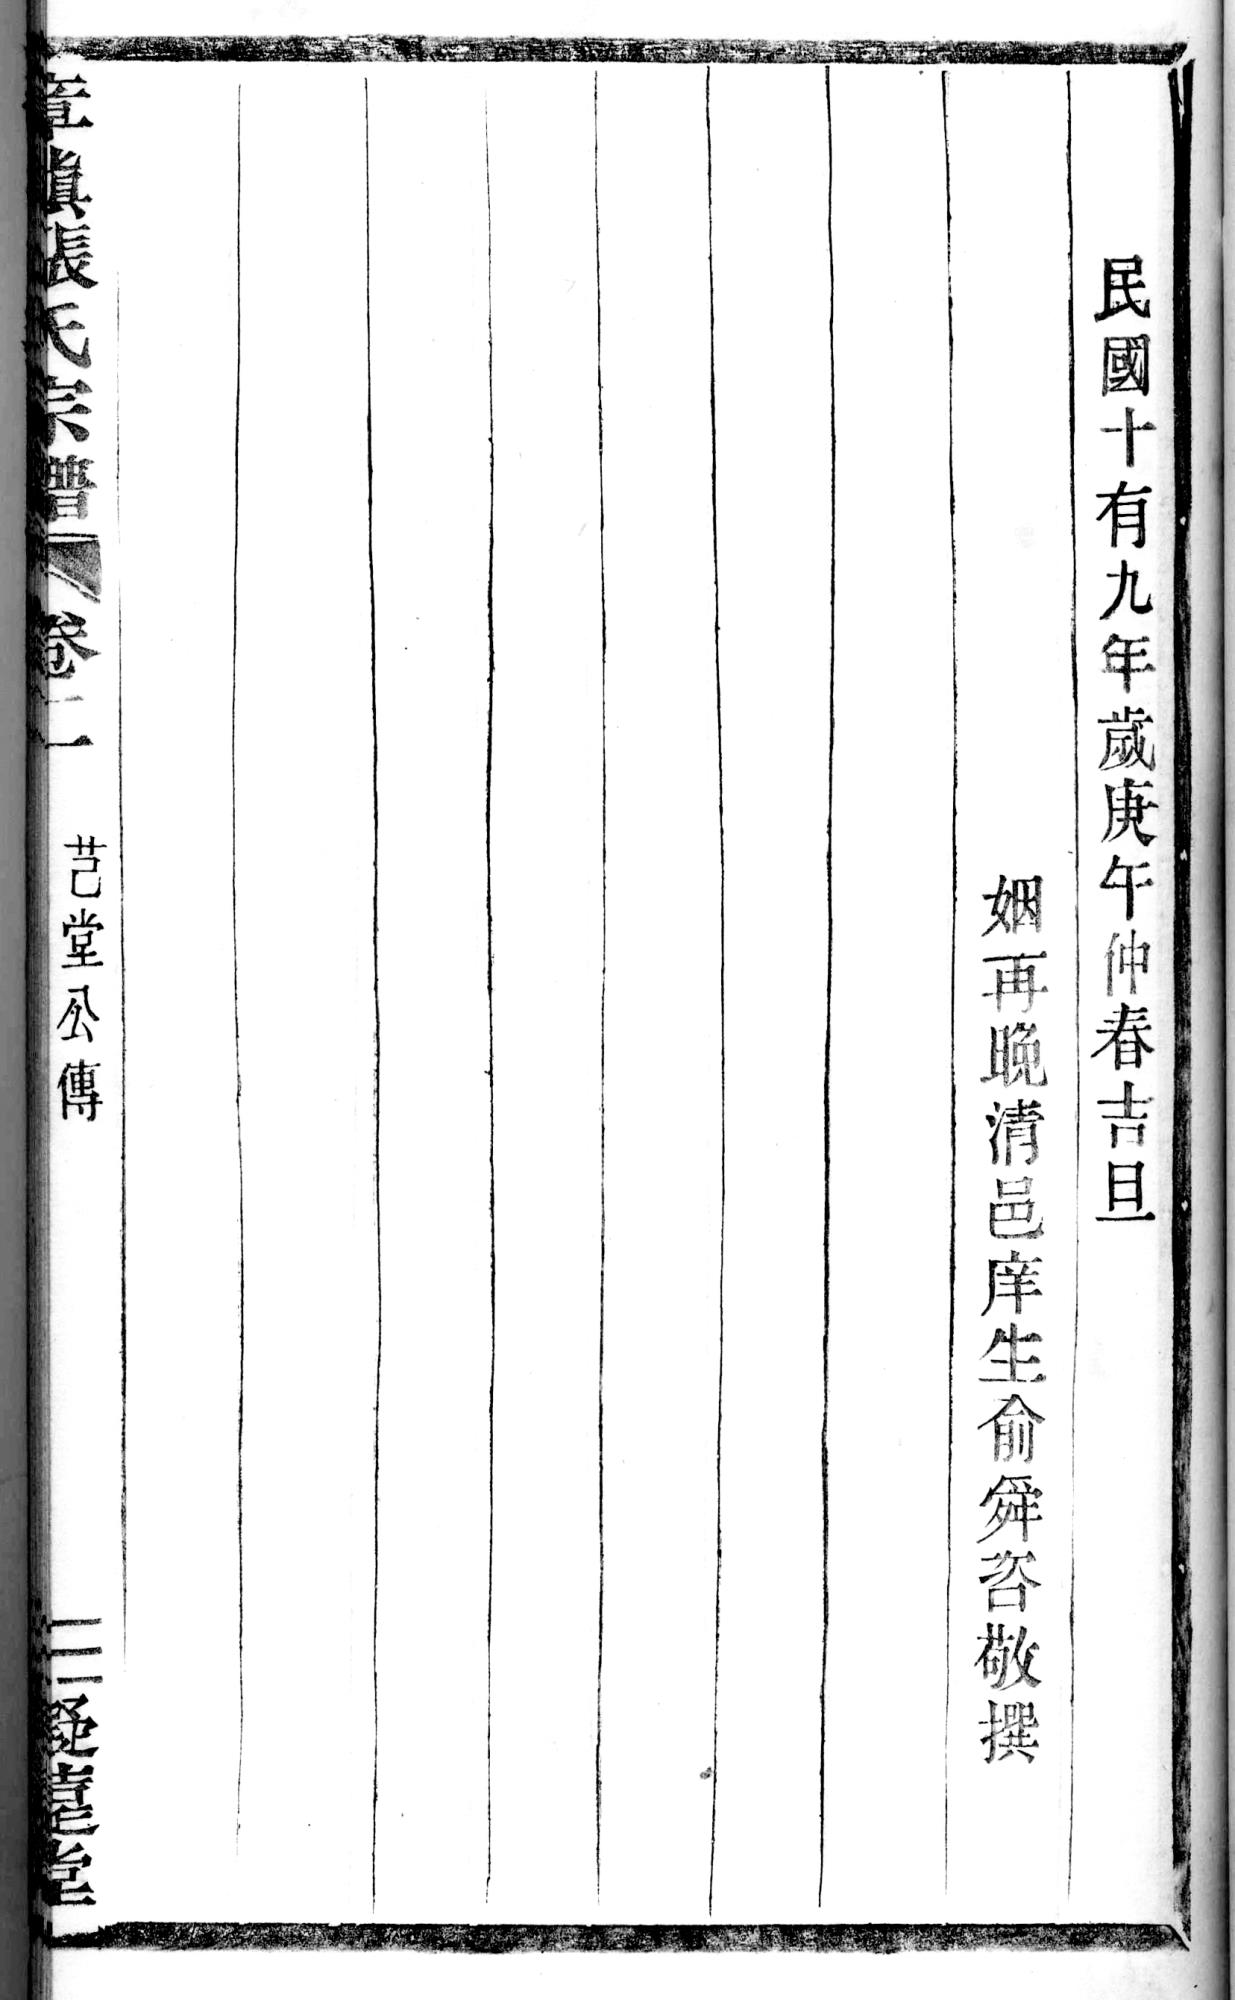 民國十有九年歲庚午仲春吉旦
姻再晚清邑庠生俞舜咨敬撰
章鎭張氏宗譜
卷二
芑堂公傳
三
凝臺堂